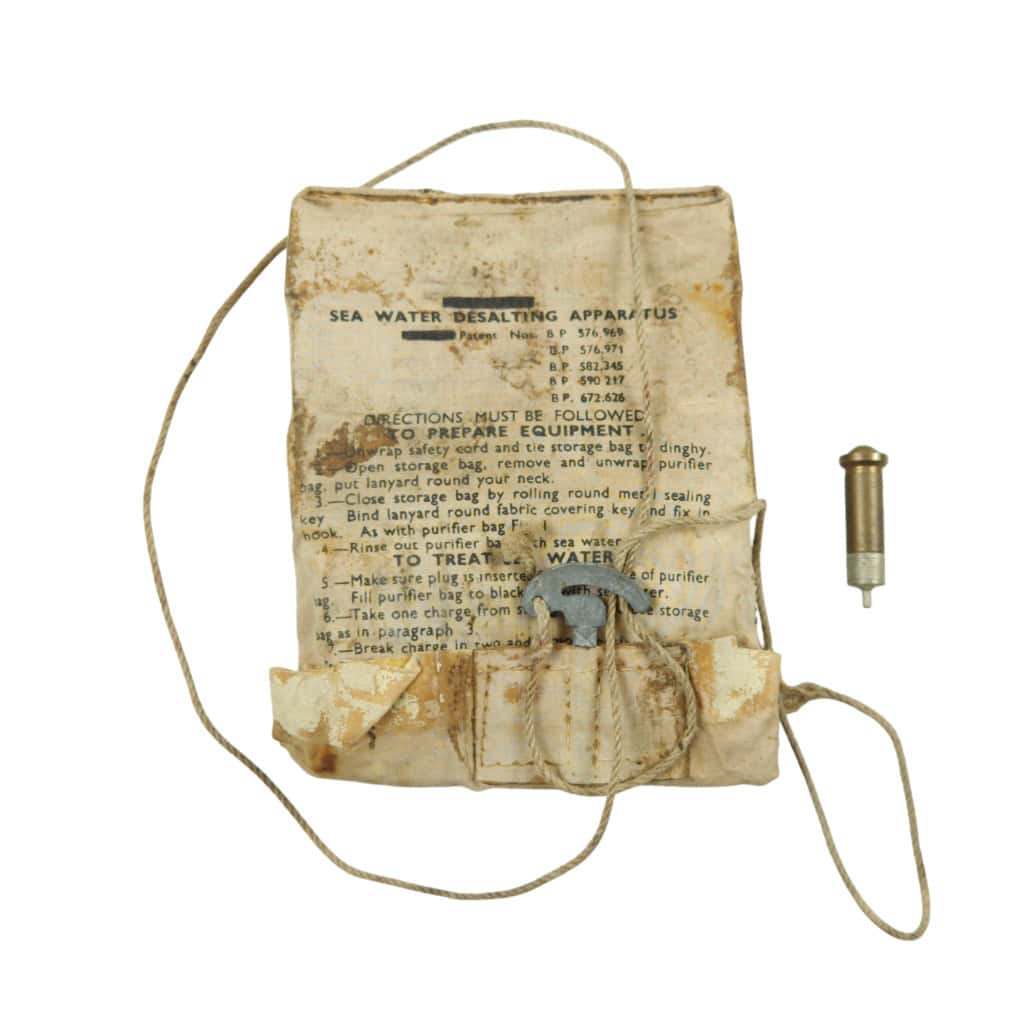 SEA WATER DESALTING APPARATUS
Patent Nos. B P 576,969
B.P 576,971
B.P. 582,345
B P 590 217
B P. 672.626
DIRECTIONS MUST BE FOLLOWED
TO PREPARE EQUIPMENT.
Unwrap safety cord and tie storage bag to dinghy.
Open storage bag, remove and unwrap purifier
bag, put lanyard round your neck.
3.—Close storage bag by rolling round metal sealing
key Bind lanyard round fabric covering key and fix in
hook. As with purifier bag
4—Rinse out purifier sea water
TO TREAT WATER
5.—Make sure plug is inserted of purifier
bag. Fill purifier bag to black with
6.—Take one charge from storage
bag as in paragraph 3.
7.—Break charge in two and